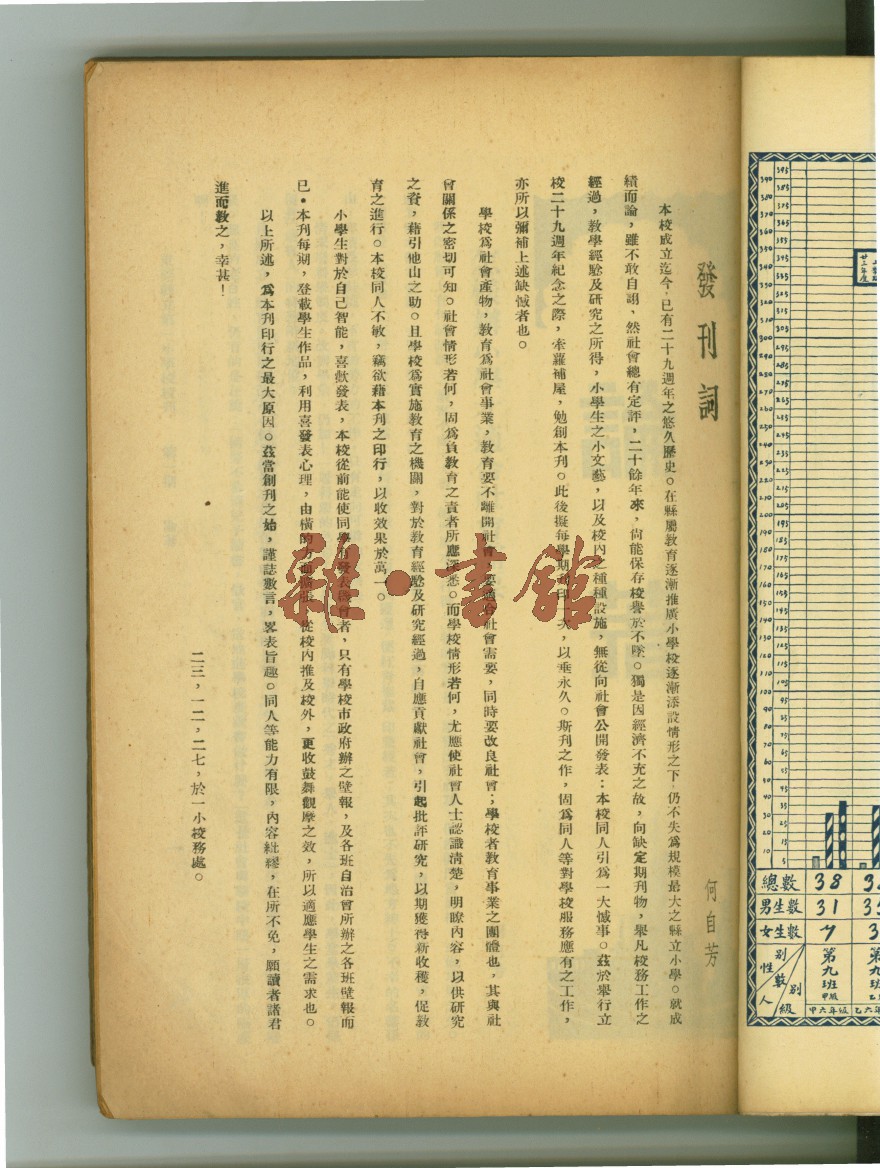 發刊詞
何自芳
本校成立迄今，已有二十九週年之悠久歷史。在縣屬教育逐漸推廣小學校逐漸添設情形之下，仍不失為規模最大之縣立小學。就成
績而論，雖不敢自詡，然社會總有定評，二十餘年來，尙能保存校譽於不墜。獨是因經濟不充之故，向缺定期刊物，舉凡校務工作之
經過，教學經驗及研究之所得，小學生之小文藝，以及校內之種種設施，無從向社會公開發表：本校同人引為一大憾事。茲於舉行立
校二十九週年紀念之際，牽蘿補屋，勉創本刊。此後擬每學期刊印一次，以垂永久。斯刊之作，固為同人等對學校服務應有之工作，
亦所以彌補上述缺憾者也。
學校為社會產物，教育為社會事業，教育要不離開社會，要適合社會需要，同時要改良社會；學校者教育事業之團體也，其與社
會關係之密切可知。社會情形若何，固為負教育之責者所應深悉。而學校情形若何，尤應使社會人士認識清楚，明瞭內容，以供研究
之資，藉引他山之助。且學校為實施教育之機關，對於教育經驗及研究經過，自應貢獻社會，引起批評研究，以期獲得新收穫，促教
育之進行。本校同人不敏，竊欲藉本刊之印行，以收效果於萬一。
小學生對於自己智能，喜歡發表，本校從前能使同學有發表機會者，只有學校市政府辦之壁報，及各班自治會所辦之各班壁報而
已。本刊每期，登載學生作品，利用喜發表心理，由橫的方面擴張，從校內推及校外，更收鼓舞觀摩之效，所以適應學生之需求也。
以上所述，為本刊印行之最大原因。茲當創刊之始，謹誌數言，畧表旨趣。同人等能力有限，內容紕繆，在所不免，願讀者諸君
進而教之，幸甚！
二三，一二，二七，於一小校務處。
雜·書館
廿三年度
395
390
385
380
375
370
365
360
355
350
345
340
335
330
325
320
315
310
305
300
295
290
285
280
275
270
265
260
255
250
245
240
235
230
225
220
215
210
205
200
195
190
185
180
175
170
165
160
155
150
145
140
135
130
125
120
115
110
105
100
95
90
85
80
75
70
65
60
55
50
45
40
35
30
25
20
15
10
5
總數 38
男生數 31
女生數 7
性別 人數 級別
第九班 甲級
甲六年級
乙六年